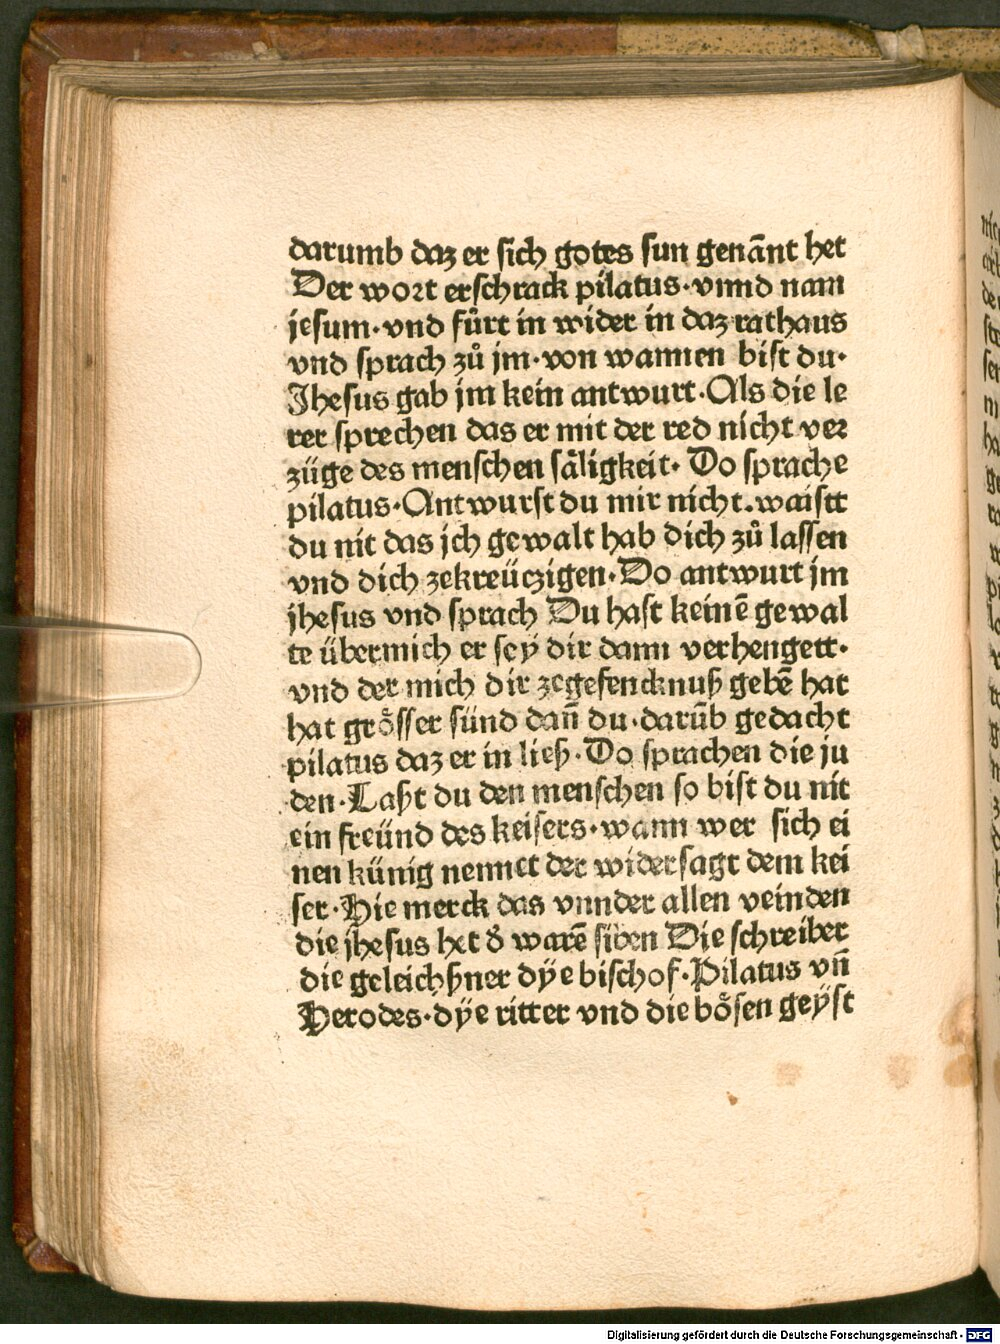 darumb daz er sich gotes sun genānt het
Der wort erschrack pilatus·vnnd nam
jesum·vnd fůrt in wider in daz rathaus
vnd sprach zů jm·von wannen bist du·
Jhesus gab jm kein antwurt·Als die le
rer sprechen das er mit der red nicht ver
züge des menschen säligkeit· Do sprache
pilatus·Antwurst du mir nicht.waistt
du nit das jch gewalt hab dich zů lassen
vnd dich zekreüczigen·Do antwurt jm
jhesus vnd sprach Du hast keinē gewal
te über mich er sey dir dann verhengett·
vnd der mich dir zegefencknuß gebē hat
hat grösser sünd dañ du·darūb gedacht
pilatus daz er in ließ·Do sprachen die ju
den·Laßt du den menschen so bist du nit
ein freünd des keisers·wann wer sich ei
nen künig nennet der widersagt dem kei
ser·Hie merck das vnnder allen veinden
die jhesus het d̕ warē siben Die schreiber
die geleichßner dÿe bischof·Pilatus vñ
Herodes·dÿe ritter vnd die bösen geÿst
Digitalisierung gefördert durch die Deutsche Forschungsgemeinschaft - DFG